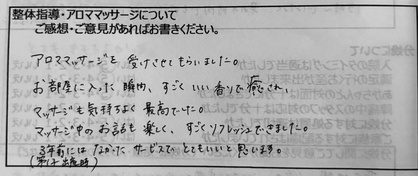 整体指導・アロママッサージについて
ご感想・ご意見があればお書きください。
アロママッサージを受けさせてもらいました。
お部屋に入った瞬間、すごくいい香りで癒され、
マッサージも気持ちよく最高でした。
マッサージ中のお話も楽しく、すごくリフレッシュできました。
3年前にはなかったサービスでとてもいいと思います。
(第1子出産時)